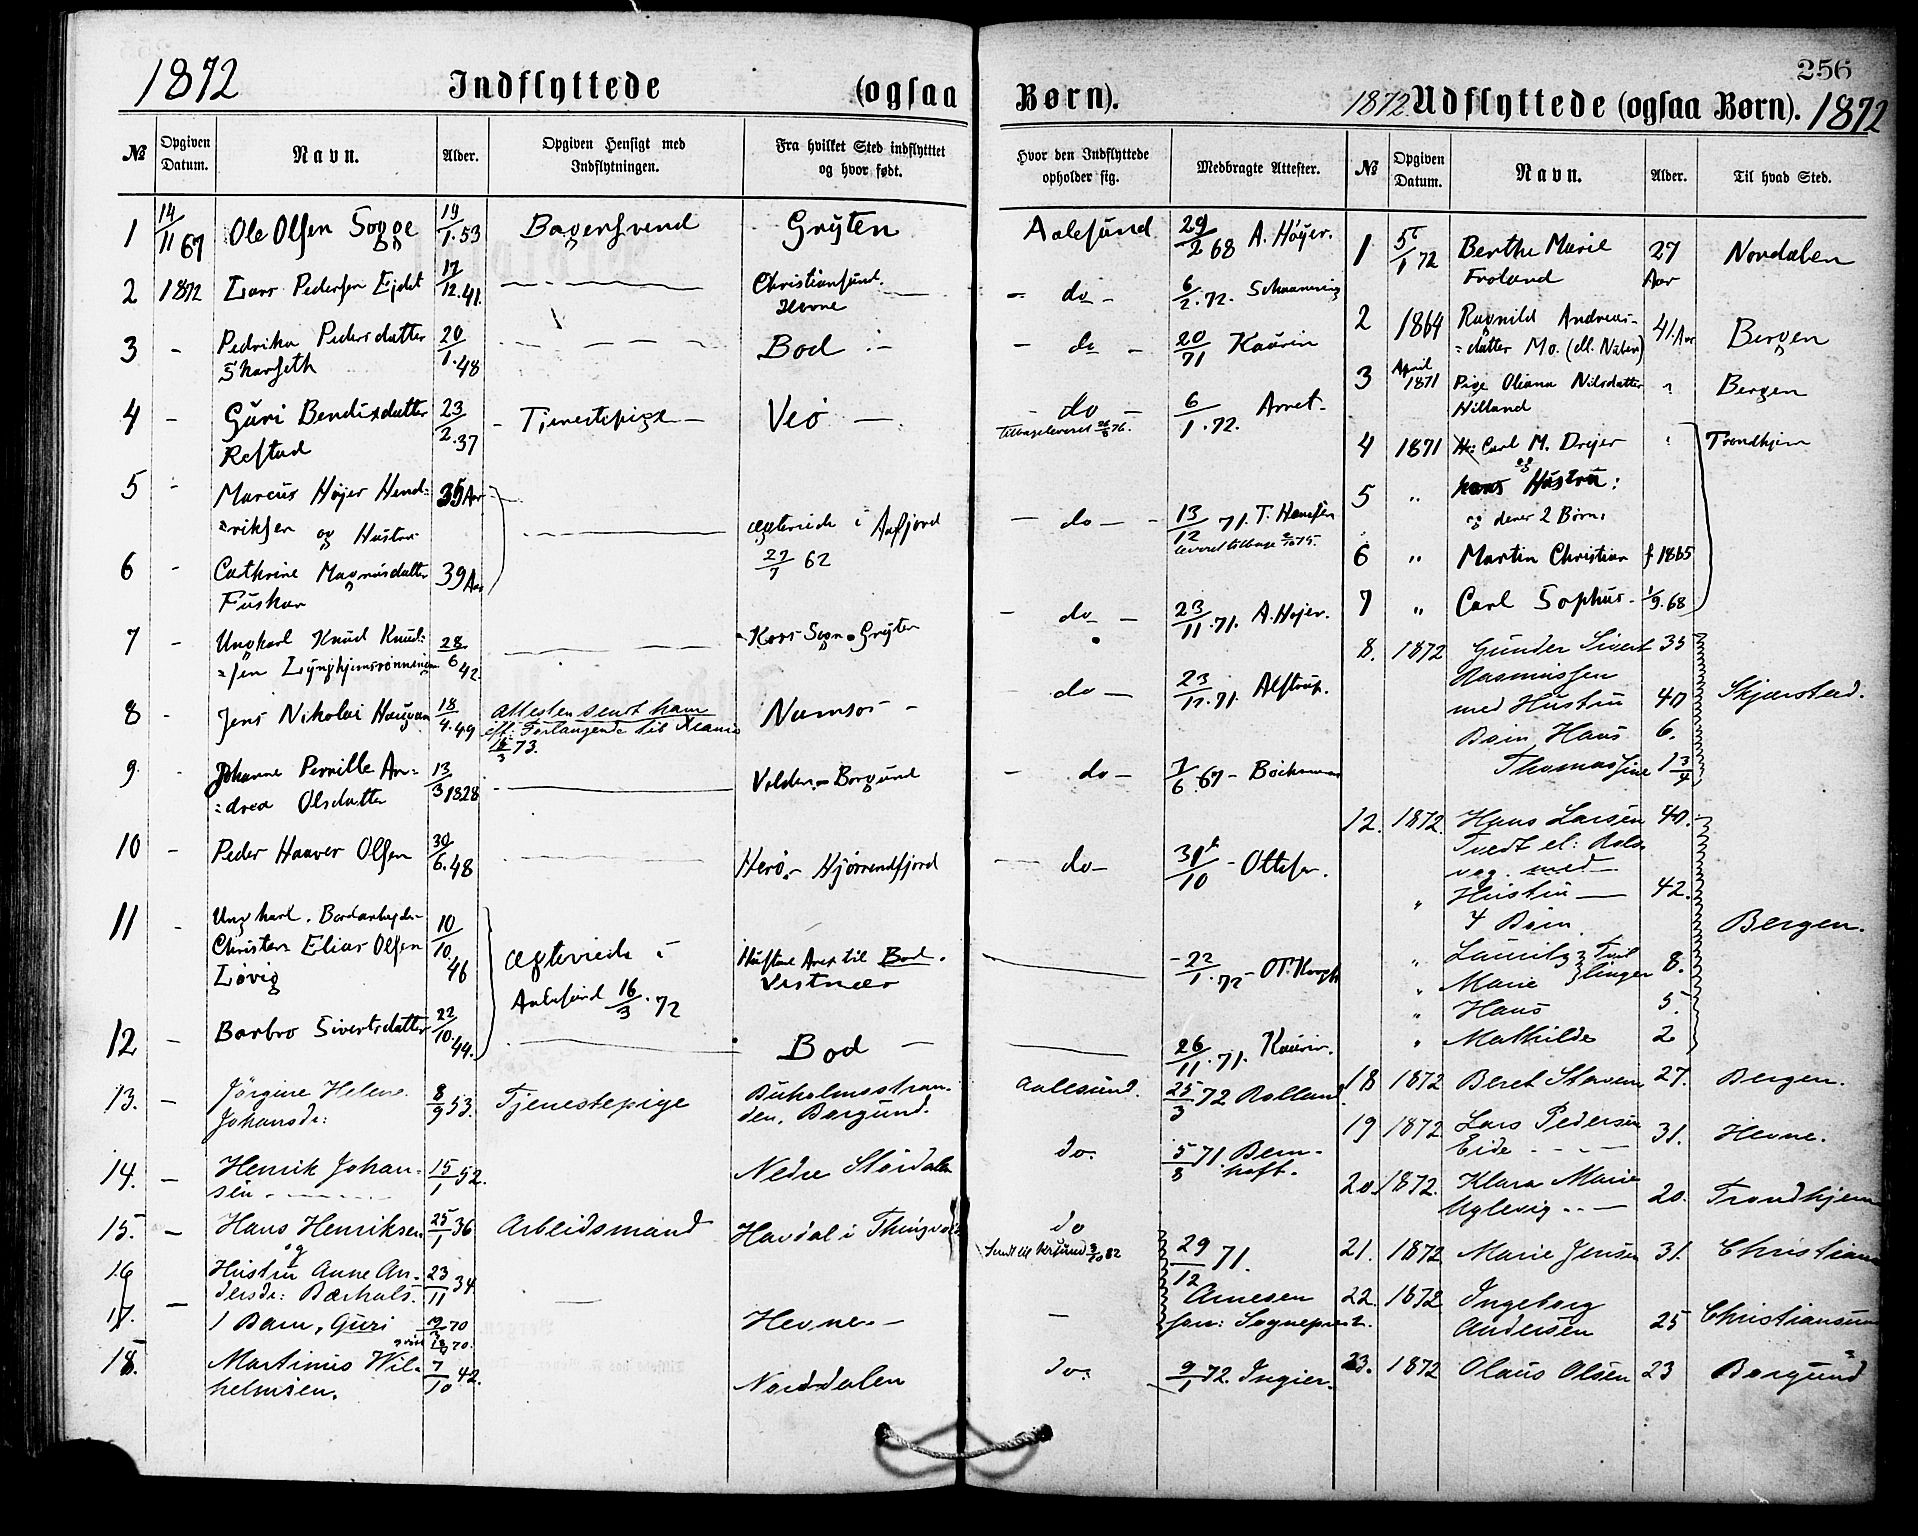 1872 Indflyttede (ogsaa Børn). 1872 Udflyttede (ogsaa Børn). 1872
256
№ Opgiven Datum. Navn. Alder. Opgiven Hensigt med Indflytningen. Fra hvilket Sted indflytttet og hvor født. Hvor den Indflyttede opholder sig. Medbragte Attester.
1 14/11 67 Ole Olsen Sogge 19/1.53 Bagersvend Gryten Aalesund 29/2 68 A. Høyer.
2 1872 Lars Pedersen Ejdet 17/12.41 Christiansund. Hevne do 6/2.72.
3 - Pedrika Pedersdatter Skarseth 20/1.48 Bod do 20/71 Kaurin
4 - Guri Bendixdatter Refstad 23/2.37 Tjenestepige Veø do 6/1.72.
Tilbageleveret
5 - Marcus Højer Hend=
=riksen og Hustru 35 Aar ægteviede i Aafjord 27/7 62 do 13/12 71. T. Hansen
leveret tilbage
6 - Cathrine Magnusdatter Fuskar 39 Aar
7 - Ungkarl Knud Knud=
=sen 28/6 42. Kors Sogn Gryten do 23/11.71. A. Højer.
8 - Jens Nikolai Haugan 18/4.49 Attesten sendt ham
eft: Forlangende 73. Namsos do 23/11.71
9. - Johanne Pernille An=
=drea Olsdatter 13/3 1828 Volden - Borgund do 7/6 67
10 - Peder Haaver Olsen 30/6.48 Herø - Hjørrendfjord do 31/10 Ottesen.
11 - Ungkarl. Bordarbejder
Christen Elias Olsen
Løvig 10/10.46 ægteviede i
Aalesund 16/3.72 Bod.
Vestnæs 22/1.72
12 - Barbro Sivertsdatter 22/10.44. Bod 26/11.71. Kaurin.
13. - Jørgine Helene
Johansdr: 8/9 53. Tjenestepige Buholmsstran-
den, Borgund. Aalesund. 25/3 72 Rolland
14. - Henrik Johan-
sen 15/1 52. Nedre Stördalen do. 5/8 71. Bern-
hoft.
15. - Hans Henriksen 25/1 36 Arbeidsmand Havdal i Thingvold do 29/12 71.
Arnesen
16 og Hustru Anne An-
dersdr: 23/11 34
17. - 1 Barn, Guri 70 Hevne
18. Martinus Wil-
helmsen. 7/10 42. Norddalen do. 9/1 72. Ingier.
№ Opgiven Datum. Navn. Alder. Til hvad Sted.
1 5/1 72 Berthe Marie
Froland 27 Aar Nordalen
2 1864 Ragnild Andreas-
=datter Mo. 41 Aar Bergen
3 April 1871 Pige Oliana Nilsdatter
Hilland Bergen
4 1871 Hr: Carl M. Drejer Trondhjem
5 " og hans Hustru:
og deres 2 Børn.
6 " Martin Christian f 1865
7 " Carl Sophus 1/9.68
8. 1872 Gunder Sivert 35
Rasmussen
med Hustru 40 Skjærstad.
Børn Hans 6.
Thomassine 1 3/4
12. 1872. Hans Larsen 40.
Tvedt el:
vog. med
" Hustru 42.
4 Børn. Bergen.
" Lauritz } Tvil
" Marie } linger 8.
" Hans 5.
" Mathilde 2
18 1872 Beret Staven 27. Bergen.
19 1872 Lars Pedersen
Eide 31. Hevne.
20. 1872. Klara Marie
Uglevig 20. Trondhjem
21. 1872 Marie Jensen 31. Christians
22. 1872 Ingeborg
Andersen 25 Christiansund
23. 1872 Olaus Olsen 23 Borgund